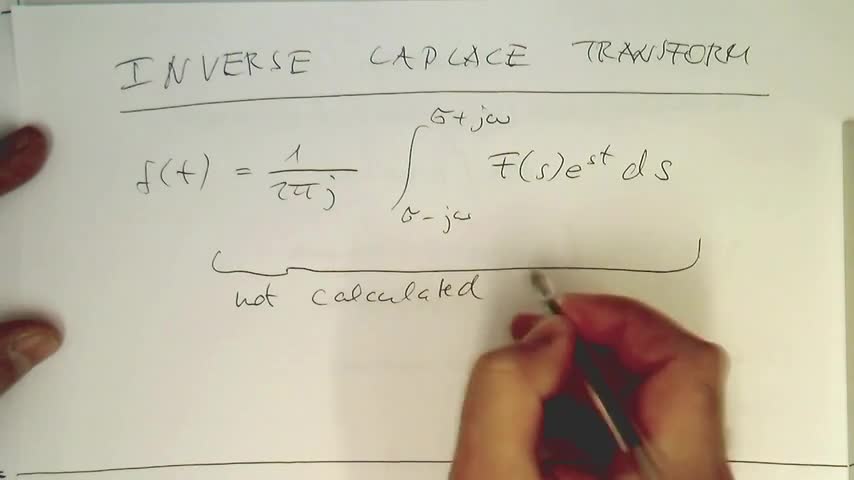 INVERSE LAPLACE TRANSFORM
f(t) = 1/2πj ∫_{σ-jω}^{σ+jω} F(s)e^{st} ds
not calculated